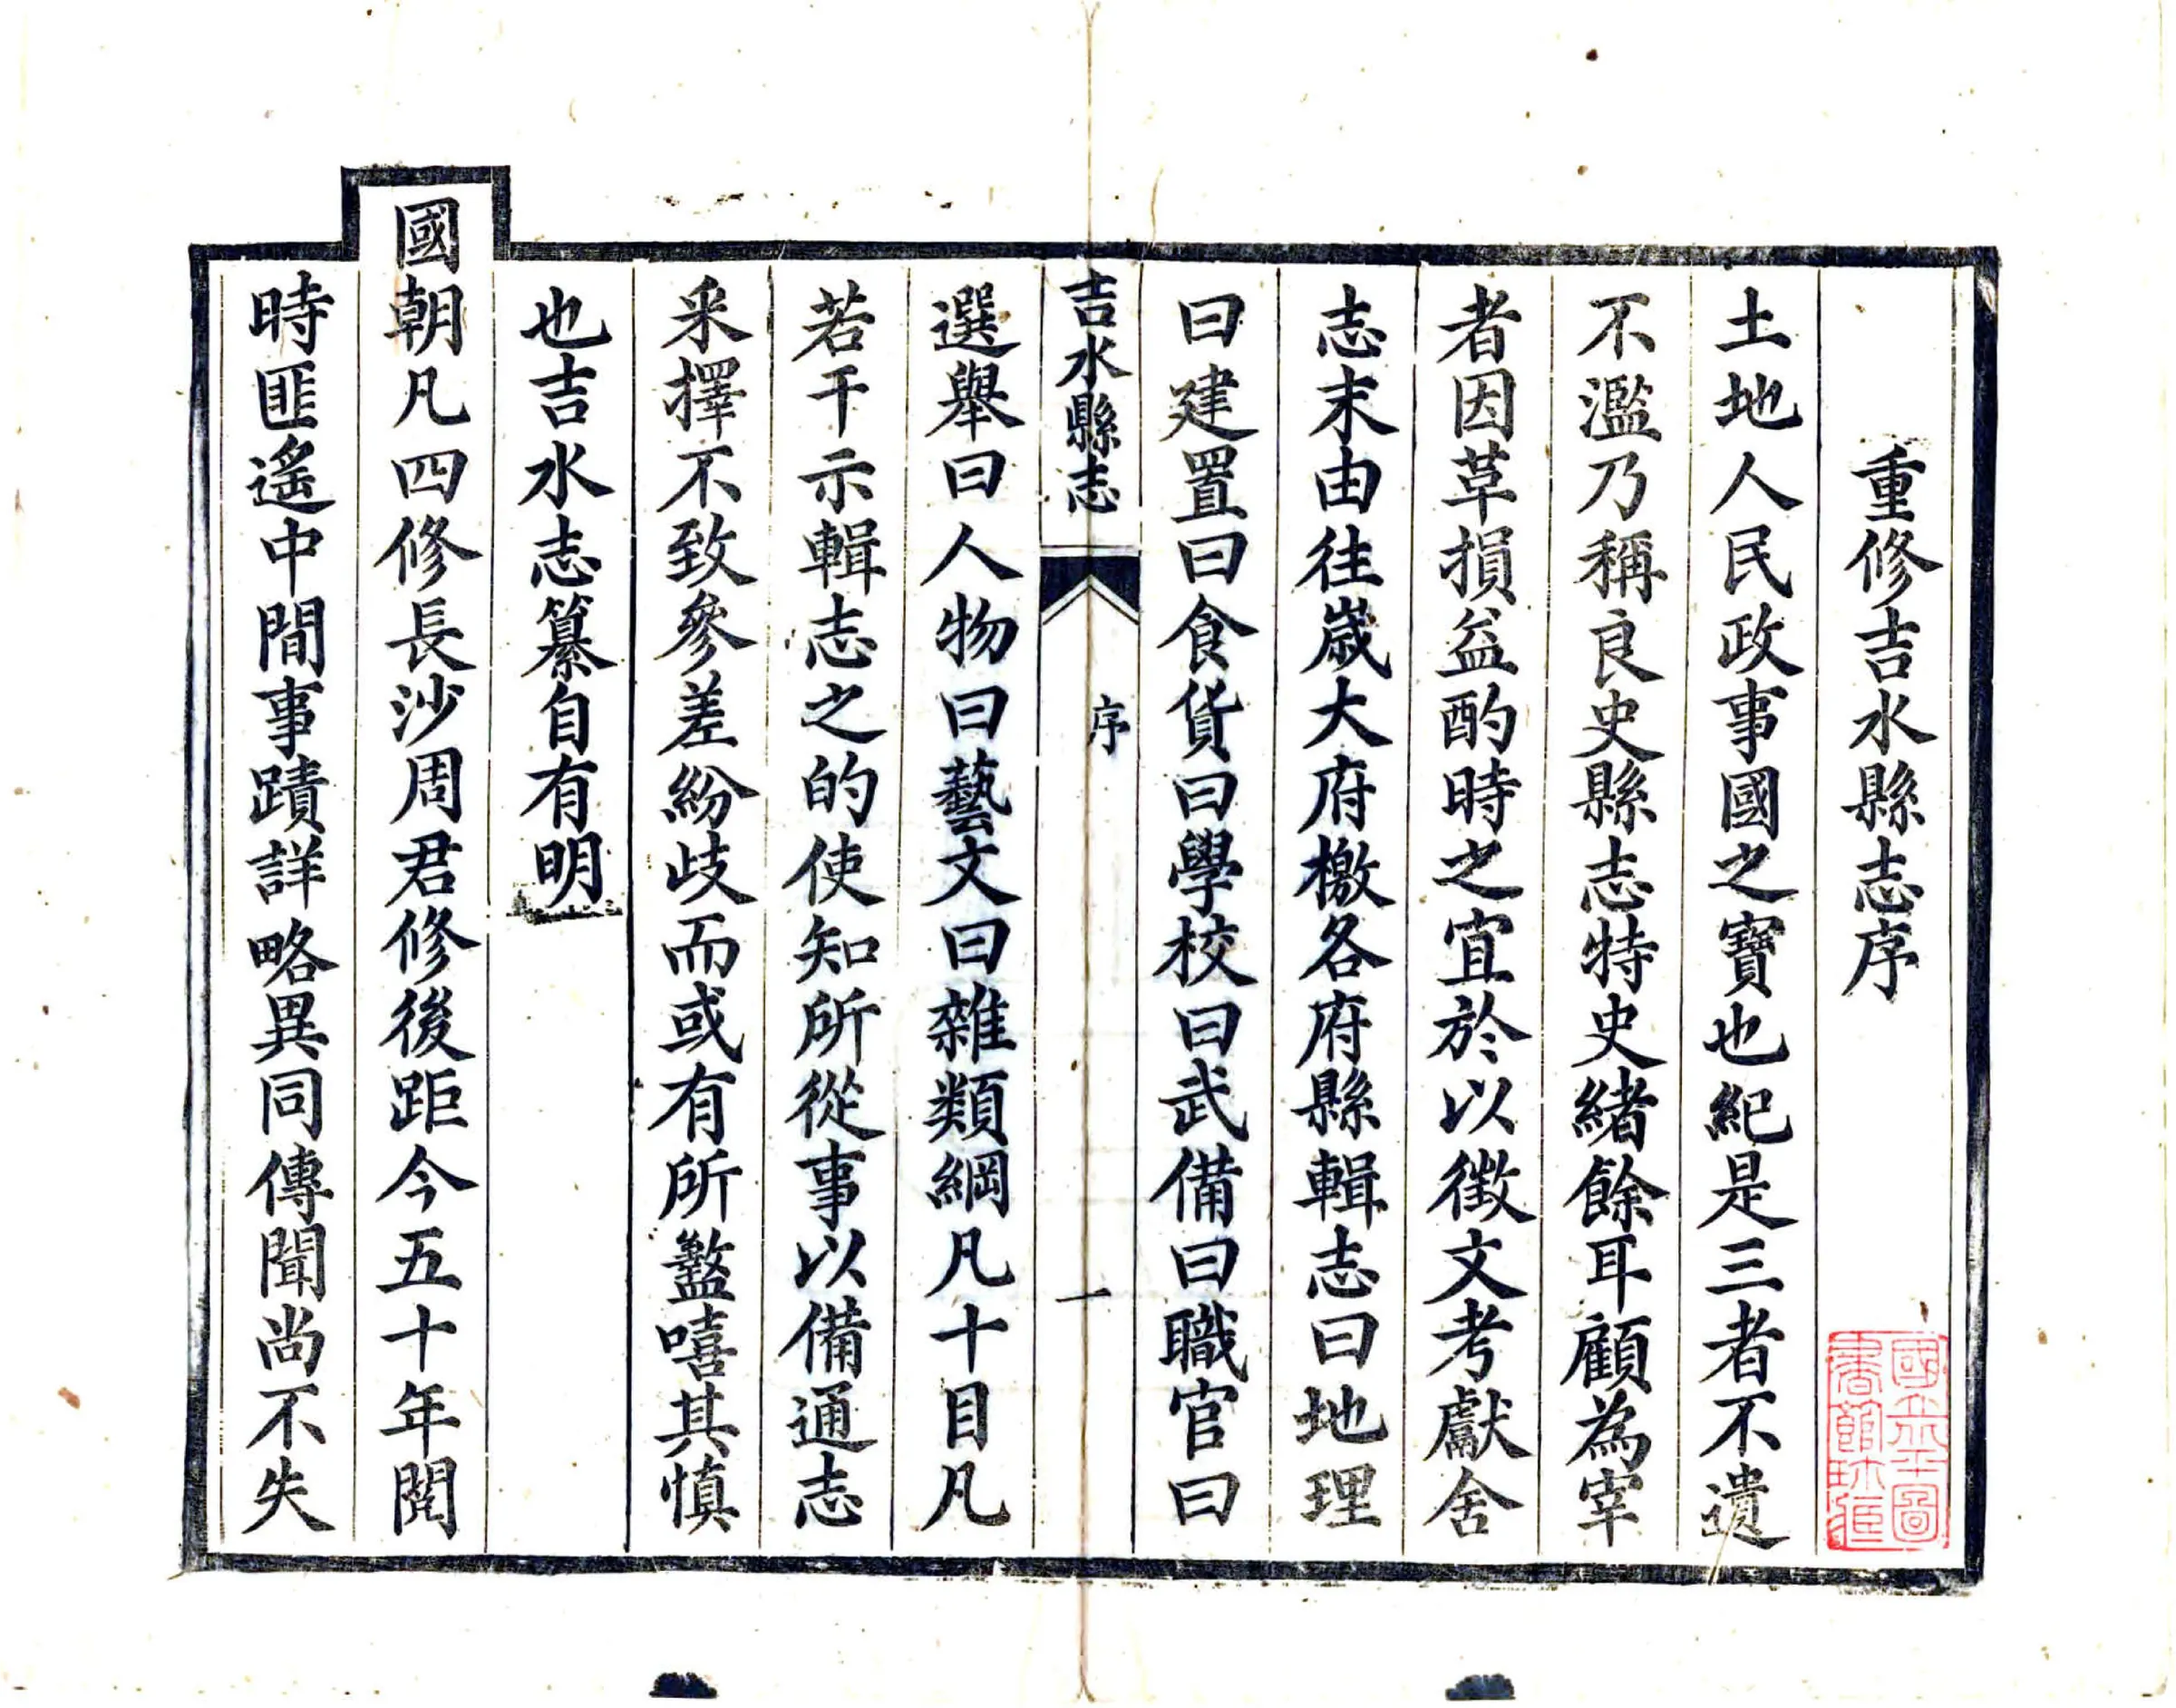 重修吉水縣志序
土地人民政事國之寶也紀是三者不遺
不濫乃稱良史縣志特史緒餘耳顧為宰
者因革損益酌時之宜於以徵文考獻舍
志末由往歲大府檄各府縣輯志曰地理
曰建置曰食貨曰學校曰武備曰職官曰
吉水縣志
序
一
選舉曰人物曰藝文曰雜類綱凡十目凡
若干示輯志之的使知所從事以備通志
采擇不致參差紛歧而或有所盭嘻其慎
也吉水志纂自有明
國朝凡四修長沙周君修後距今五十年閱
時匪遙中間事蹟詳略異同傳聞尚不失